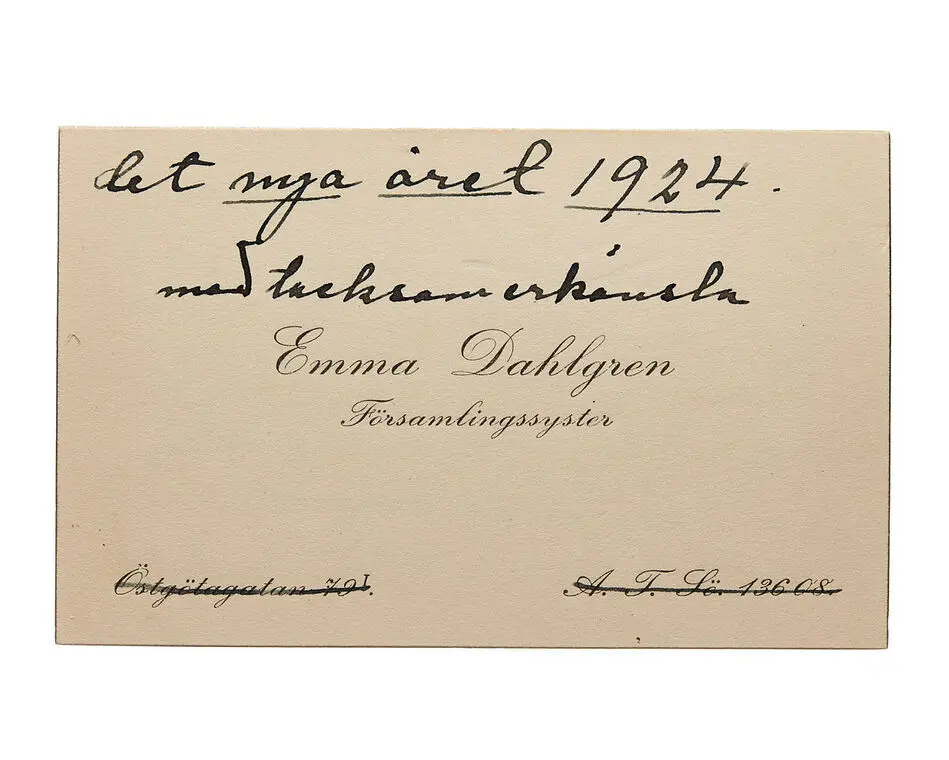 det nya året 1924.
med tacksam erkänsla
Emma Dahlgren
Församlingssyster
Östgötagatan 79 I.
A. T. Sö. 136 08.